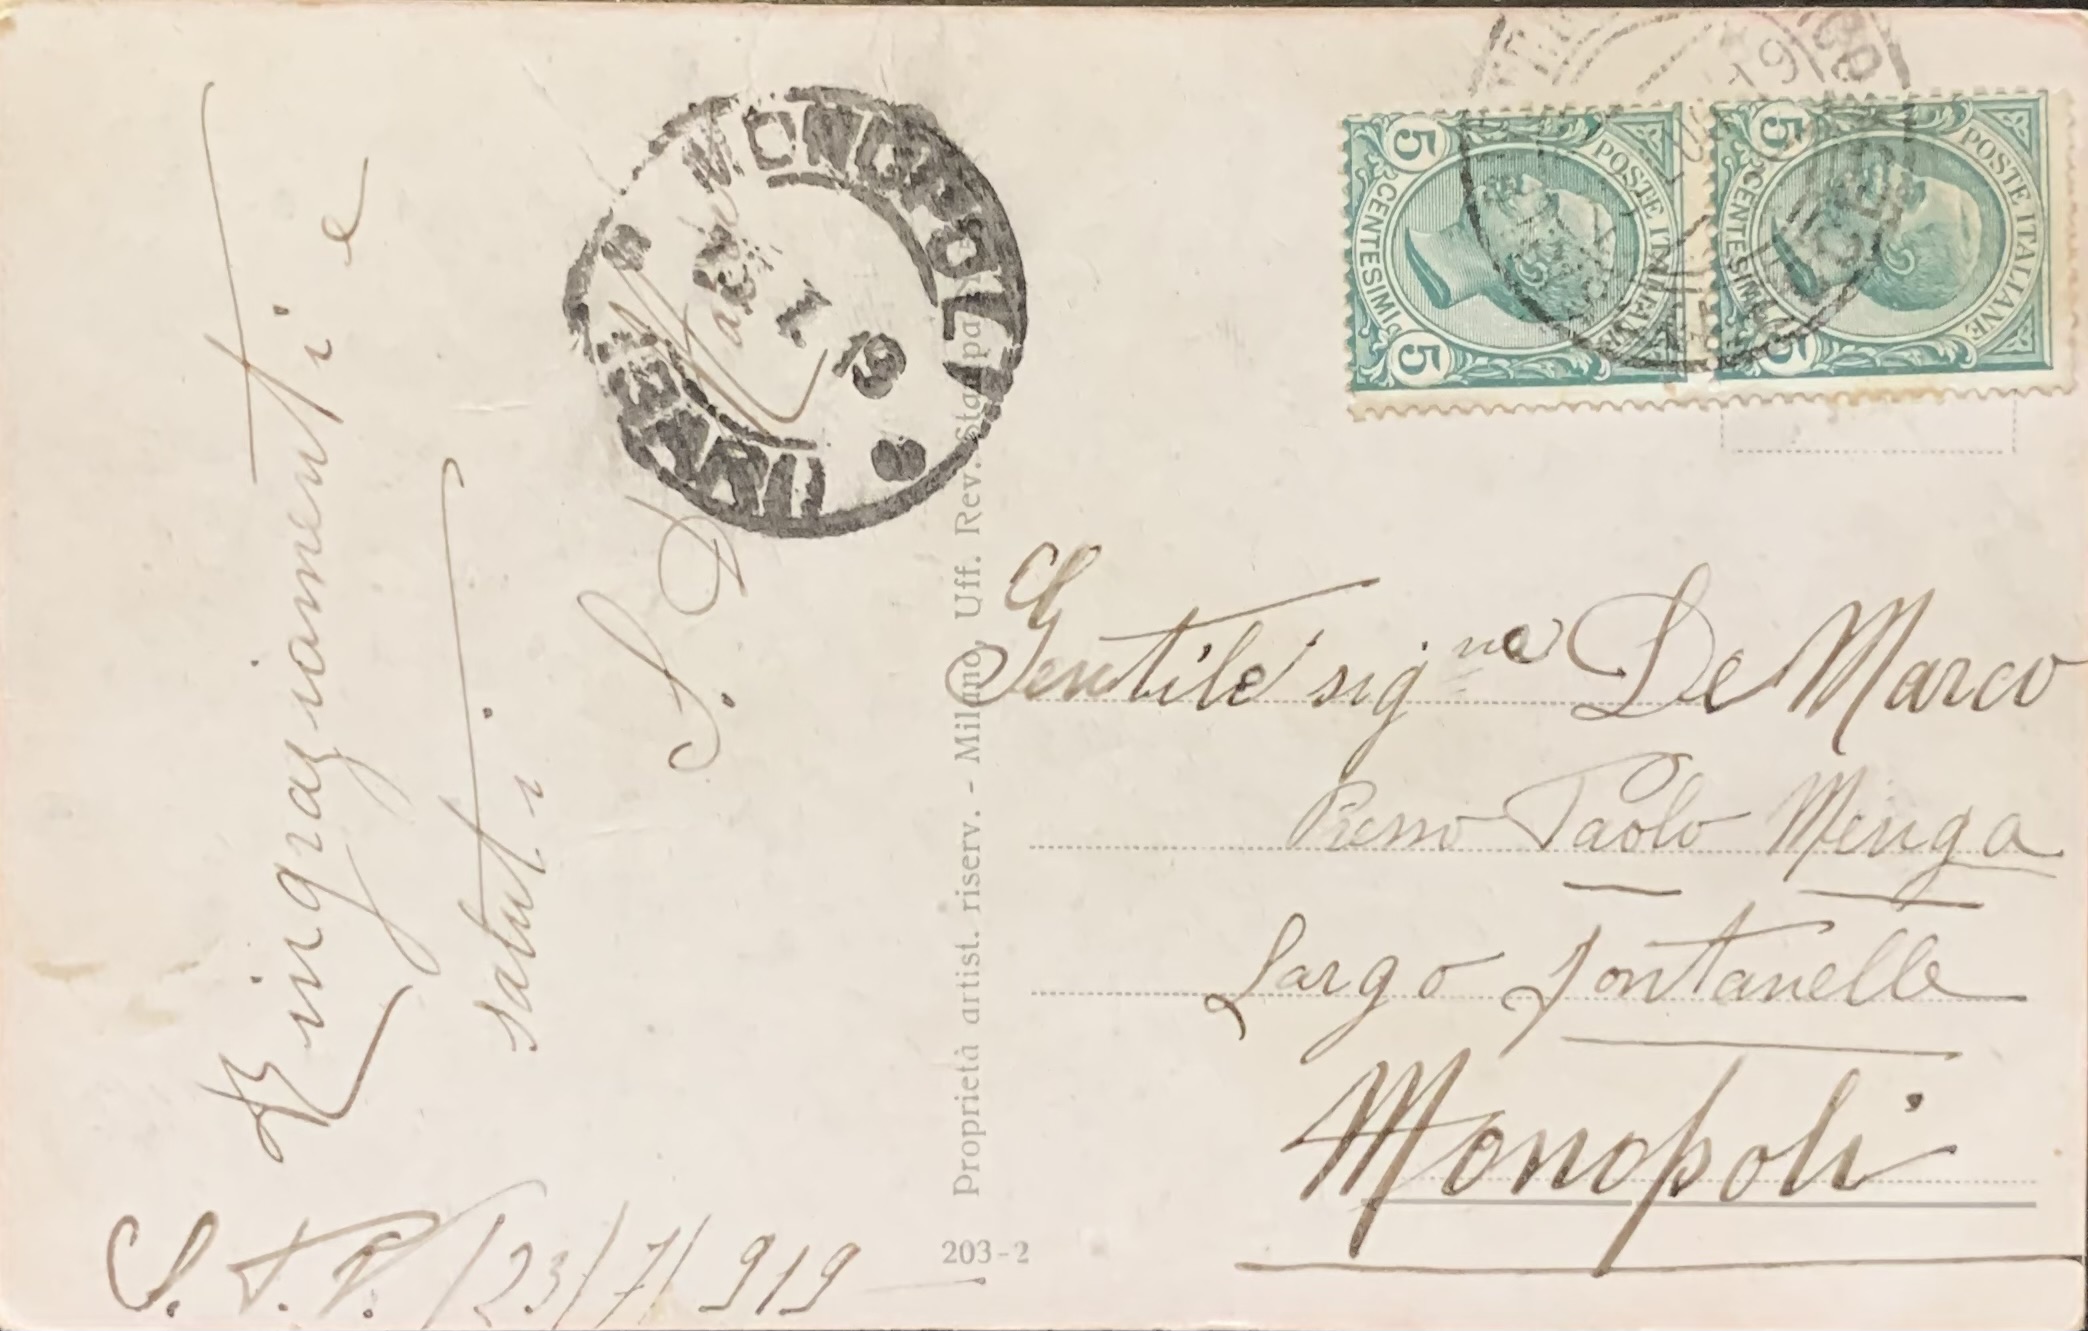 Ringraziamenti e
saluti
S. D
S. V. P. 23/7/919
MONOPOLI
7. 19
Proprietà artist. riserv. - Milano, Uff. Rev. Stampa
203-2
POSTE ITALIANE
CENTESIMI
5 5
POSTE ITALIANE
CENTESIMI
5 5
Gentile sig.na De Marco
Presso Paolo Menga
Largo Fontanelle
Monopoli